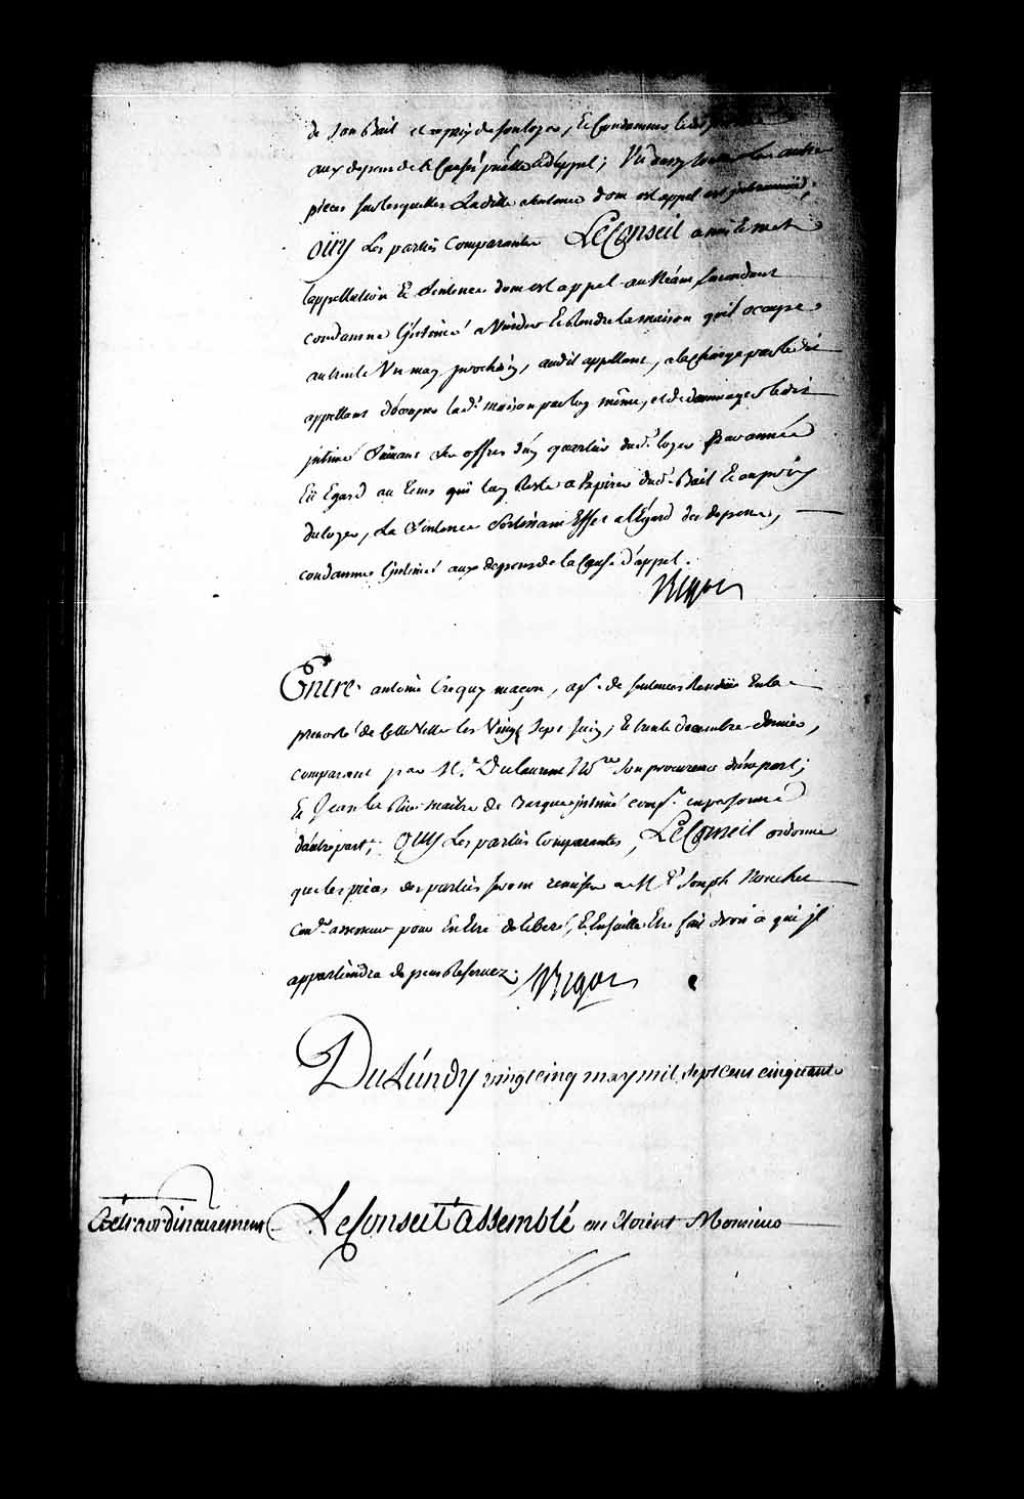 de son Bail et au prix de son loyer, Et Condamner led.
aux depens de la Cause d'appel; Vû aussy toutes les autres
pieces sur lesquelles Ladite sentence dont est appel est intervenuë;
OÜY Les parties Comparantes LeConseil a mis Et met
l'appellation Et sentence dont est appel au Néant, Emandant
condamne l'Intimé a Vuider Et Rendre la maison qu'il occupe
au trente Un may prochain, audit appellant, a la charge par ledit
appellant d'occuper lad.e maison par luy même, et de dommager ledit
intimé suivant ses offres d'un quartier dud.t loyer par année
Eü Egard au tems qui luy Reste a Expirer dud.t Bail Et au prix
du loyer, La Sentence Sortissant Effet a l'Egard des depens,
condamne l'Intimé aux depens de la Cause d'appel.
Bigot
Entre antoine Crequy maçon, ap.t de sentences Renduës En la
prevosté de Cette Ville les Vingt Sept Juin, Et trente decembre dernier,
comparant par M.e Dulaurent No.re son procureur d'une part;
Et Jean le maitre de Barque intimé comp.t en personne
d'autre part; OUY Les parties Comparantes, LeConseil ordonne
que les pieces des parties seront remises a M.e Joseph Nouchet
Con.er assesseur pour En Etre deliberé, Et Ensuitte Etre fait droit a qui il
appartiendra depens Reservez. Bigot
Du Lundy vingt cinq may mil sept cens cinquante
Extraordinairement Le Conseil assemblé ou Etoient Monsieur